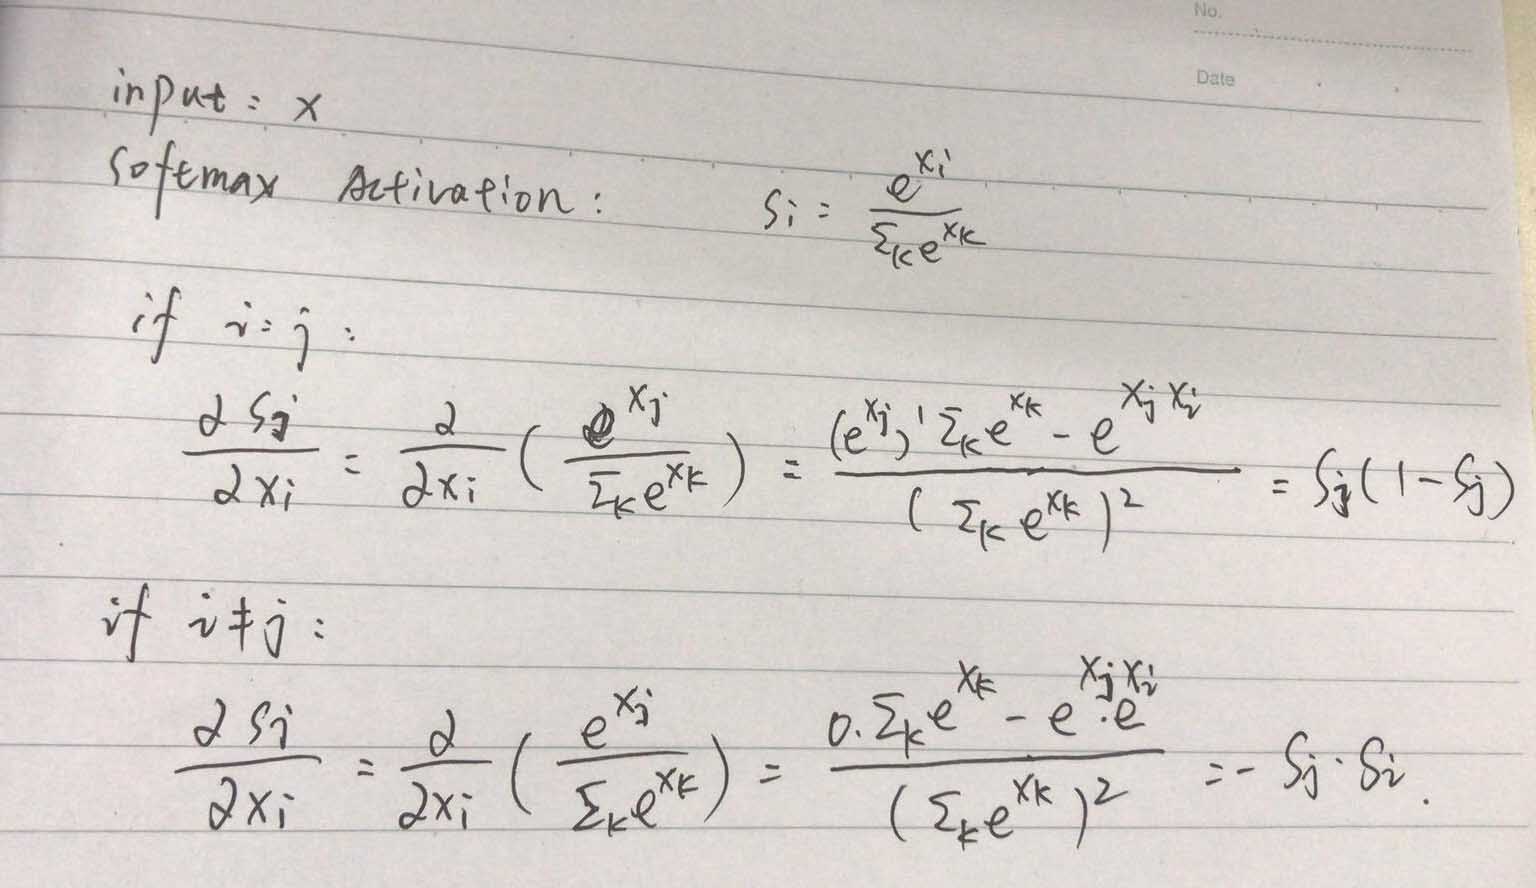 No.
Date
input: x
Softmax Activation: Si = e^xi / Σk e^xk
if i=j:
∂Sj / ∂xi = ∂ / ∂xi ( e^xj / Σk e^xk ) = ( (e^xj)' Σk e^xk - e^xj xi ) / ( Σk e^xk )^2 = Sj(1-Sj)
if i≠j:
∂Sj / ∂xi = ∂ / ∂xi ( e^xj / Σk e^xk ) = ( 0.Σk e^xk - e^xj . e^xi ) / ( Σk e^xk )^2 = - Sj · Si.